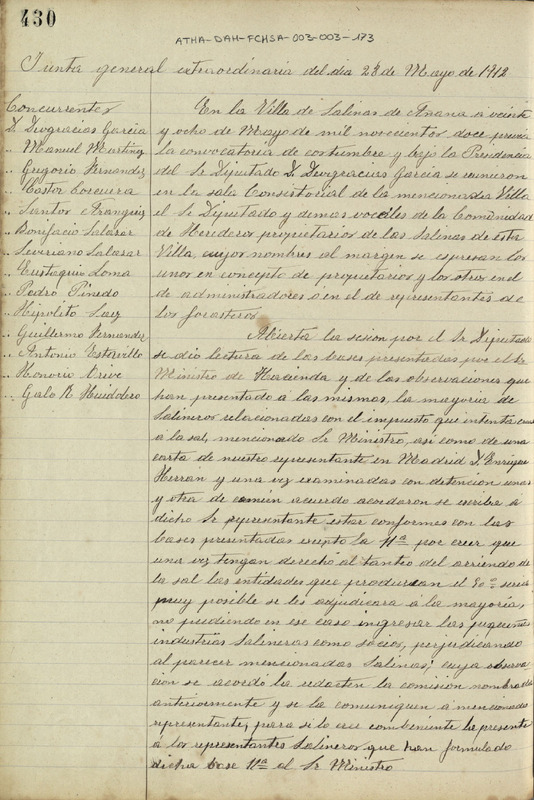 430
ATHA-DAH-FCHSA-003-003-173
Junta general extraordinaria del dia 28 de Mayo de 1912
Concurrentes
D. Deogracias Garcia
" Manuel Martinez
" Gregorio Fernandez
" Castor Corcuera
" Santos Frangüiz
" Bonifacio Salazar
" Severiano Salazar
" Eustaquio Loma
" Pedro Pinedo
" Hipolito Saez
" Guillermo Fernandez
" Antonio Estavillo
" Honorio Urive
" Galo R Huidobro
En la Villa de Salinas de Añana a veinte
y ocho de Mayo de mil novecientos doce previa
la convocatoria de costumbre y bajo la Presidencia
del Sr Diputado D. Deogracias Garcia se reunieron
en la sala Consistorial de la mencionada Villa
el Sr Diputado y demas vocales de la Comunidad
de Herederos propietarios de las Salinas de esta
Villa, cuyos nombres al margen se espresan los
unos en concepto de propietarios y los otros en el
de administradores ó en el de representantes de
los forasteros.
Abierta la sesion por el Sr Diputado
se dio lectura de las bases presentadas por el Sr
Ministro de Hacienda y de las observaciones que
han presentado a las mismas, la mayoria de
Salineros relacionadas con el impuesto que intenta crear
a la sal, mencionado Sr Ministro, asi como de una
carta de nuestro representante en Madrid D. Enrique
Herran y una vez examinadas con detencion unas
y otra de común acuerdo acordaron se escriba á
dicho Sr representante estar conformes con las
bases presentadas esepto la 11ª por creer que
una vez tengan derecho al tanteo del arriendo de
la sal las entidades que produzcan el 80 º seria
muy posible se les adjudicara á la mayoria,
no pudiendo en ese caso ingresar las pequeñas
industrias Salineras como socios, perjudicando
al parecer mencionadas Salinas; cuya observa
cion se acordó la redacten la comisión nombrada
anteriormente y se la comuniquen a mencionado
representante, para si lo cree combeniente la presente
a los representantes Salineros que han formulado
dicha base 11ª al Sr Ministro